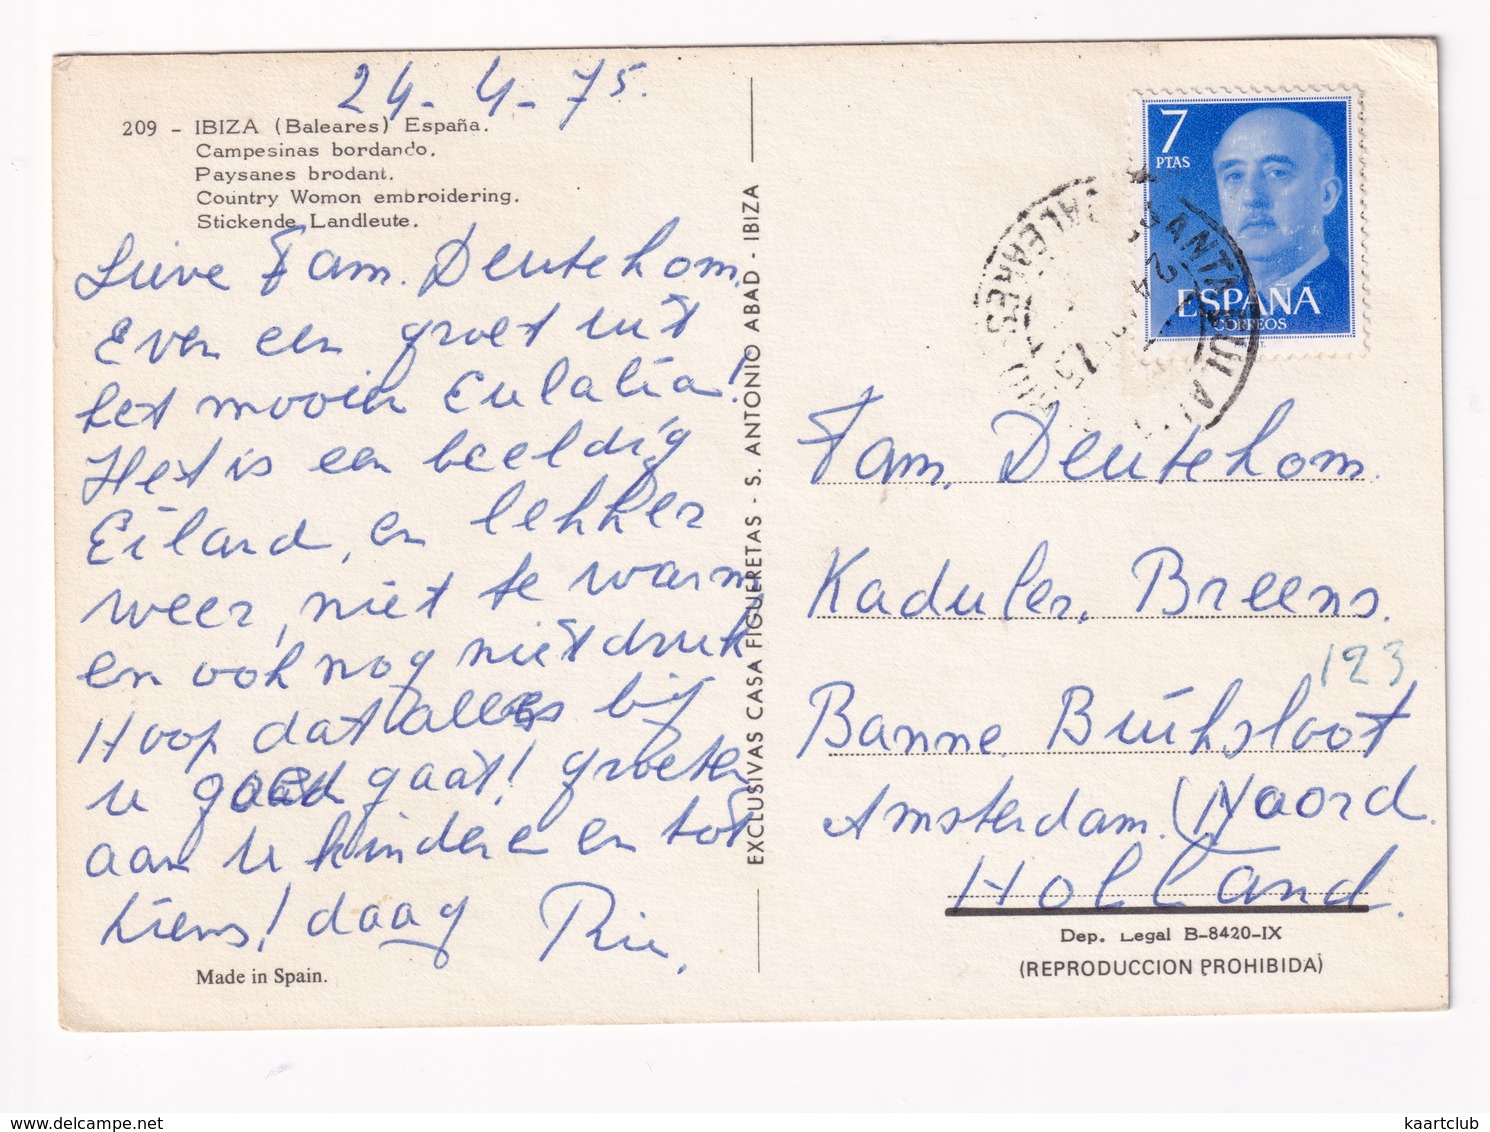 24-4-75.
209 - IBIZA (Baleares) España.
Campesinas bordando.
Paysanes brodant.
Country Womon embroidering.
Stickende Landleute.
Lieve Fam. Deutekom.
Even een groet uit
het mooie Eulalia!
Het is een beeldig
Eiland, en lekker
weer, niet te warm,
en ook nog niet druk
Hoop dat alles bij
u goed gaat! groeten
aan u kinderen en tot
ziens! daag Rie.
Made in Spain.
EXCLUSIVAS CASA FIGUERETAS - S. ANTONIO ABAD - IBIZA
7
PTAS
ESPAÑA
CORREOS
SANTA EULALIA
BALEARES
Fam. Deutekom.
Kaduler, Breens.
123
Banne Buiksloot
Amsterdam. (Noord.
Holland.
Dep. Legal B-8420-IX
(REPRODUCCION PROHIBIDA)
www.delcampe.net
kaartclub